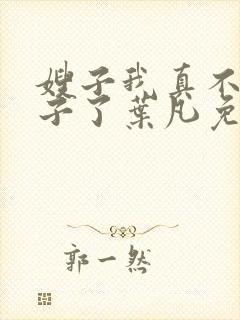 嫂子我真不
子了葉凡免
郭一然